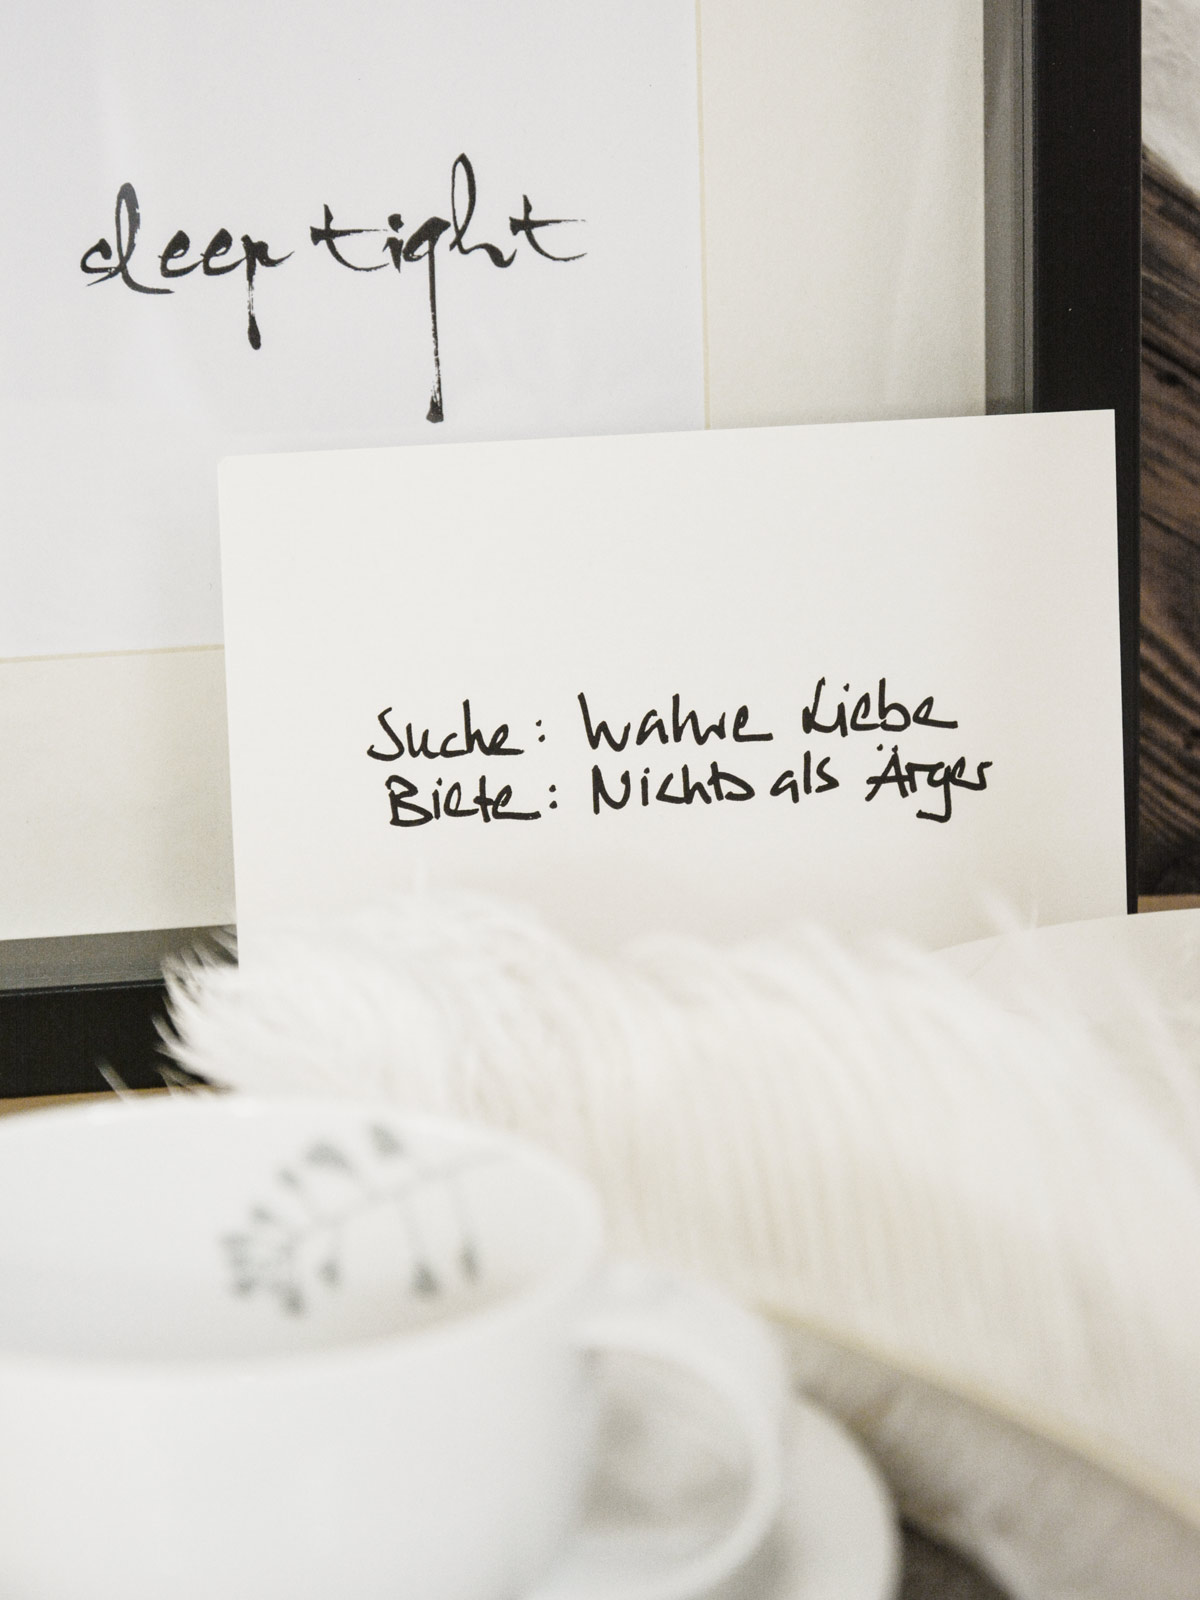 sleep tight
Suche: Wahre Liebe
Biete: Nichts als Ärger